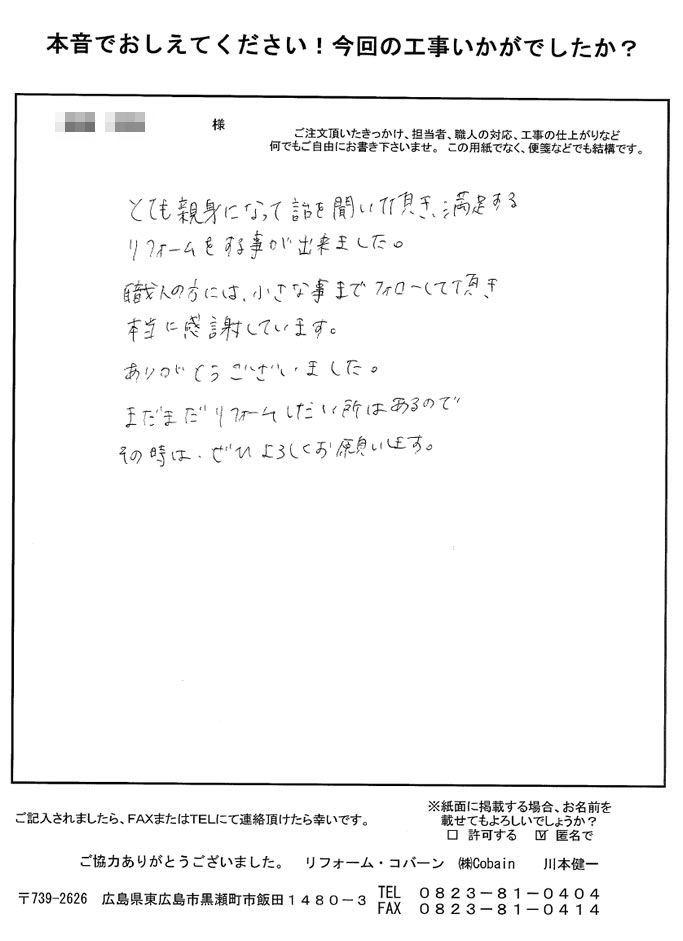 本音でおしえてください！今回の工事いかがでしたか？
様
ご注文頂いたきっかけ、担当者、職人の対応、工事の仕上がりなど
何でもご自由にお書き下さいませ。この用紙でなく、便箋などでも結構です。
とても親身になって話を聞いて頂き、満足する
リフォームをする事が出来ました。
職人の方には、小さな事までフォローして頂き
本当に感謝しています。
ありがとうございました。
まだまだリフォームしたい所はあるので
その時は、ぜひよろしくお願いします。
ご記入されましたら、FAXまたはTELにて連絡頂けたら幸いです。
※紙面に掲載する場合、お名前を
載せてもよろしいでしょうか？
□ 許可する ☑ 匿名で
ご協力ありがとうございました。 リフォーム・コバーン ㈱Cobain 川本健一
〒739-2626 広島県東広島市黒瀬町市飯田１４８０－３
TEL ０８２３－８１－０４０４
FAX ０８２３－８１－０４１４